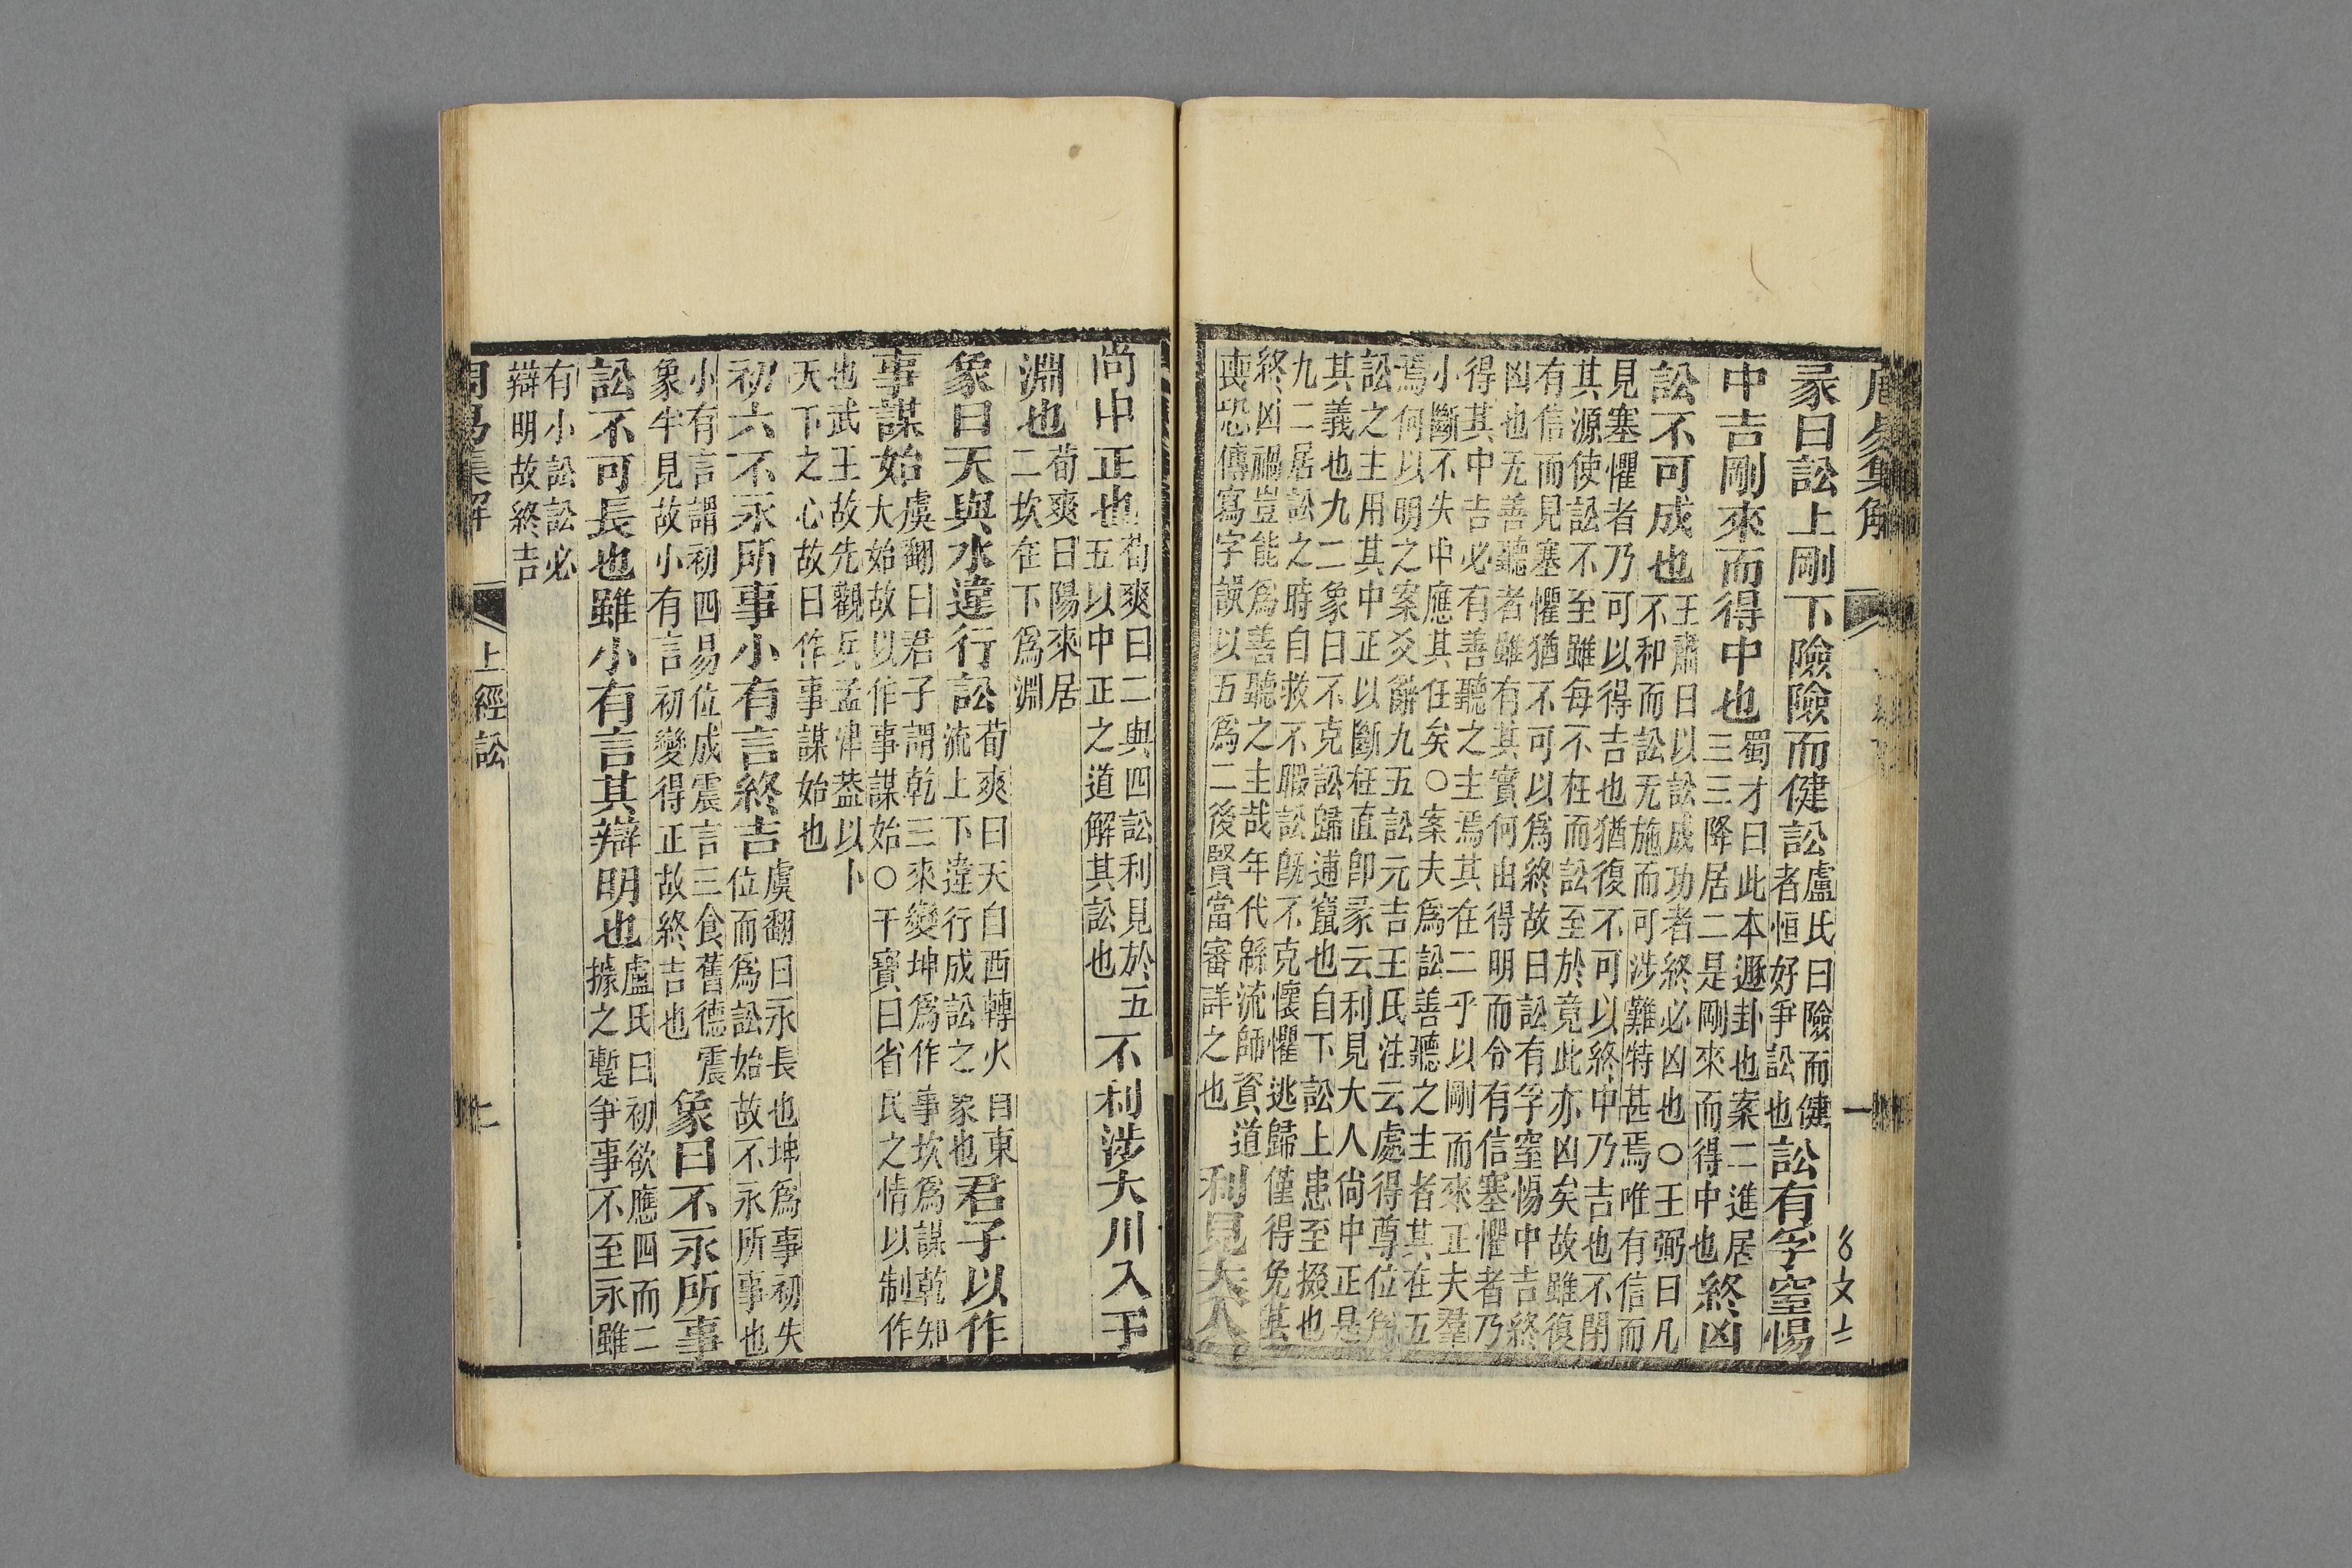 周易集解
彖曰訟上剛下險險而健訟盧氏曰險而健者恒好爭訟也訟有孚窒惕
中吉剛來而得中也蜀才曰此本遯卦也案二進居三三降居二是剛來而得中也終凶
訟不可成也王肅曰以訟成功者終必凶也○王弼曰凡不和而訟无施而可涉難特甚焉唯有信而
見塞懼者乃可以得吉也猶復不可以終中乃吉也不閉
其源使訟不至雖每不枉而訟至於竟此亦凶矣故雖復
有信而見塞懼猶不可以爲終故曰訟有孚窒惕中吉終
凶也无善聽者雖有其實何由得明而令有信塞懼者乃
得其中吉必有善聽之主焉其在二乎以剛而來正夫羣
小斷不失中應其任矣○案夫爲訟善聽之主者其在五
焉何以明之案爻辭九五訟元吉王氏注云處得尊位爲
訟之主用其中正以斷枉直卽彖云利見大人尙中正是
其義也九二象曰不克訟歸逋竄也自下訟上患至掇也
九二居訟之時自救不暇訟旣不克懷懼逃歸僅得免其
終凶禍豈能爲善聽之主哉年代緜流師資道
喪恐傳寫字誤以五爲二後賢當審詳之也利見大人
尙中正也荀爽曰二與四訟利見於五五以中正之道解其訟也不利涉大川入于
淵也荀爽曰陽來居二坎在下爲淵
象曰天與水違行訟荀爽曰天自西轉水自東流上下違行成訟之象也君子以作
事謀始虞翻曰君子謂乾三來變坤爲作事坎爲謀乾知大始故以作事謀始○干寶曰省民之情以制作
也武王故先觀兵孟津葢以卜
天下之心故曰作事謀始也
初六不永所事小有言終吉虞翻曰永長也坤爲事初失位而爲訟始故不永所事也
小有言謂初四易位成震言三食舊德震
象半見故小有言初變得正故終吉也象曰不永所事
訟不可長也雖小有言其辯明也盧氏曰初欲應四而二據之蹔爭事不至永雖
有小訟訟必
辯明故終吉
周易集解 上經訟